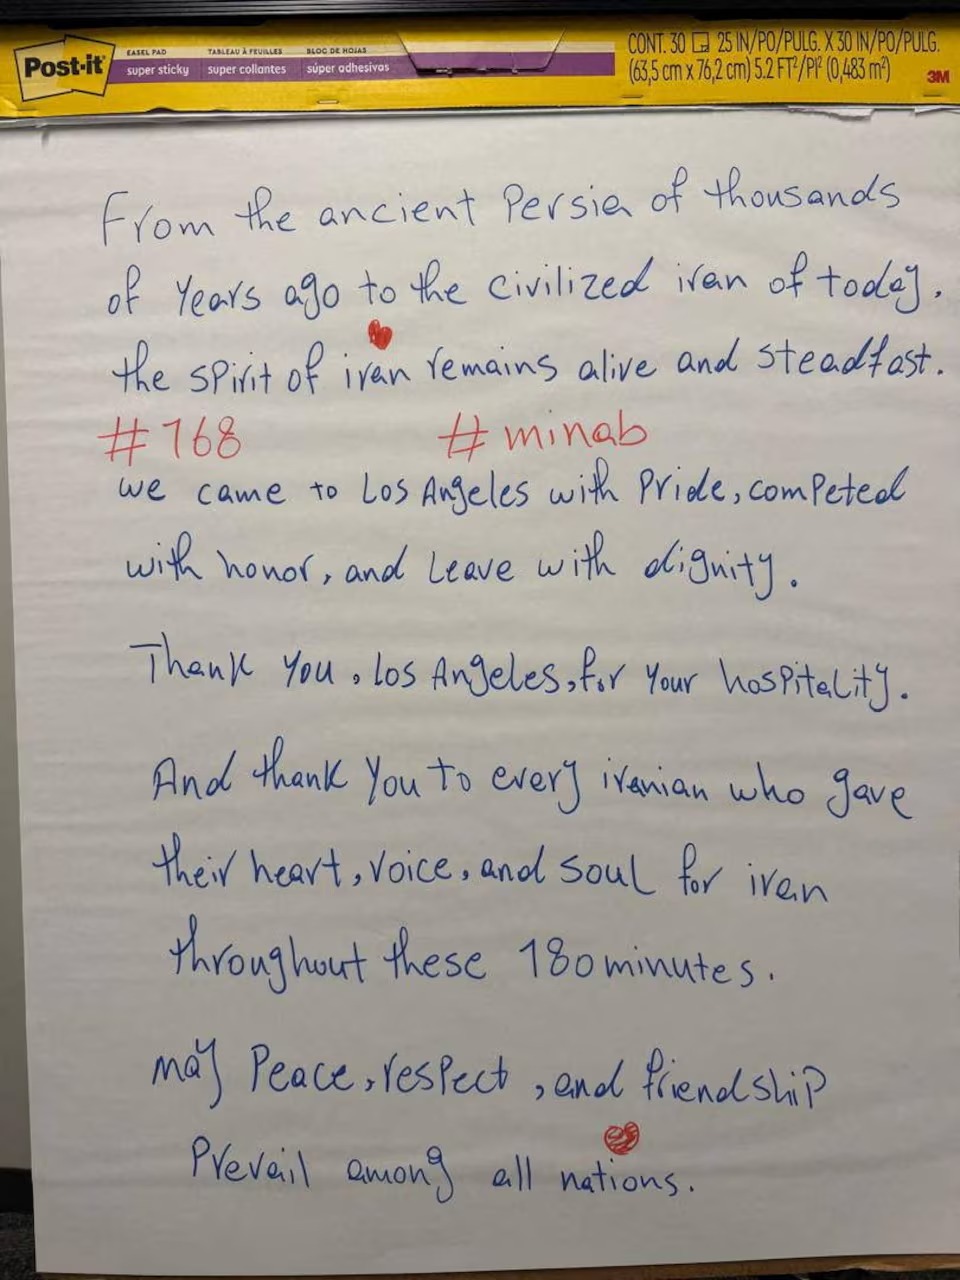 Post-it
EASEL PAD
super sticky
TABLEAU À FEUILLES
super collantes
BLOC DE HOJAS
súper adhesivas
CONT. 30 25 IN/PO/PULG. X 30 IN/PO/PULG.
(63,5 cm x 76,2 cm) 5.2 FT²/PI² (0,483 m²)
3M
From the ancient Persia of thousands
of Years ago to the civilized iran of today.
the spirit of iran remains alive and steadfast.
#168 #minab
we came to Los Angeles with Pride, competed
with honor, and Leave with dignity.
Thank You, Los Angeles, for Your hospitality.
And thank You to every iranian who gave
their heart, voice, and soul for iran
throughout these 180 minutes.
may Peace, respect, and friendship
Prevail among all nations.